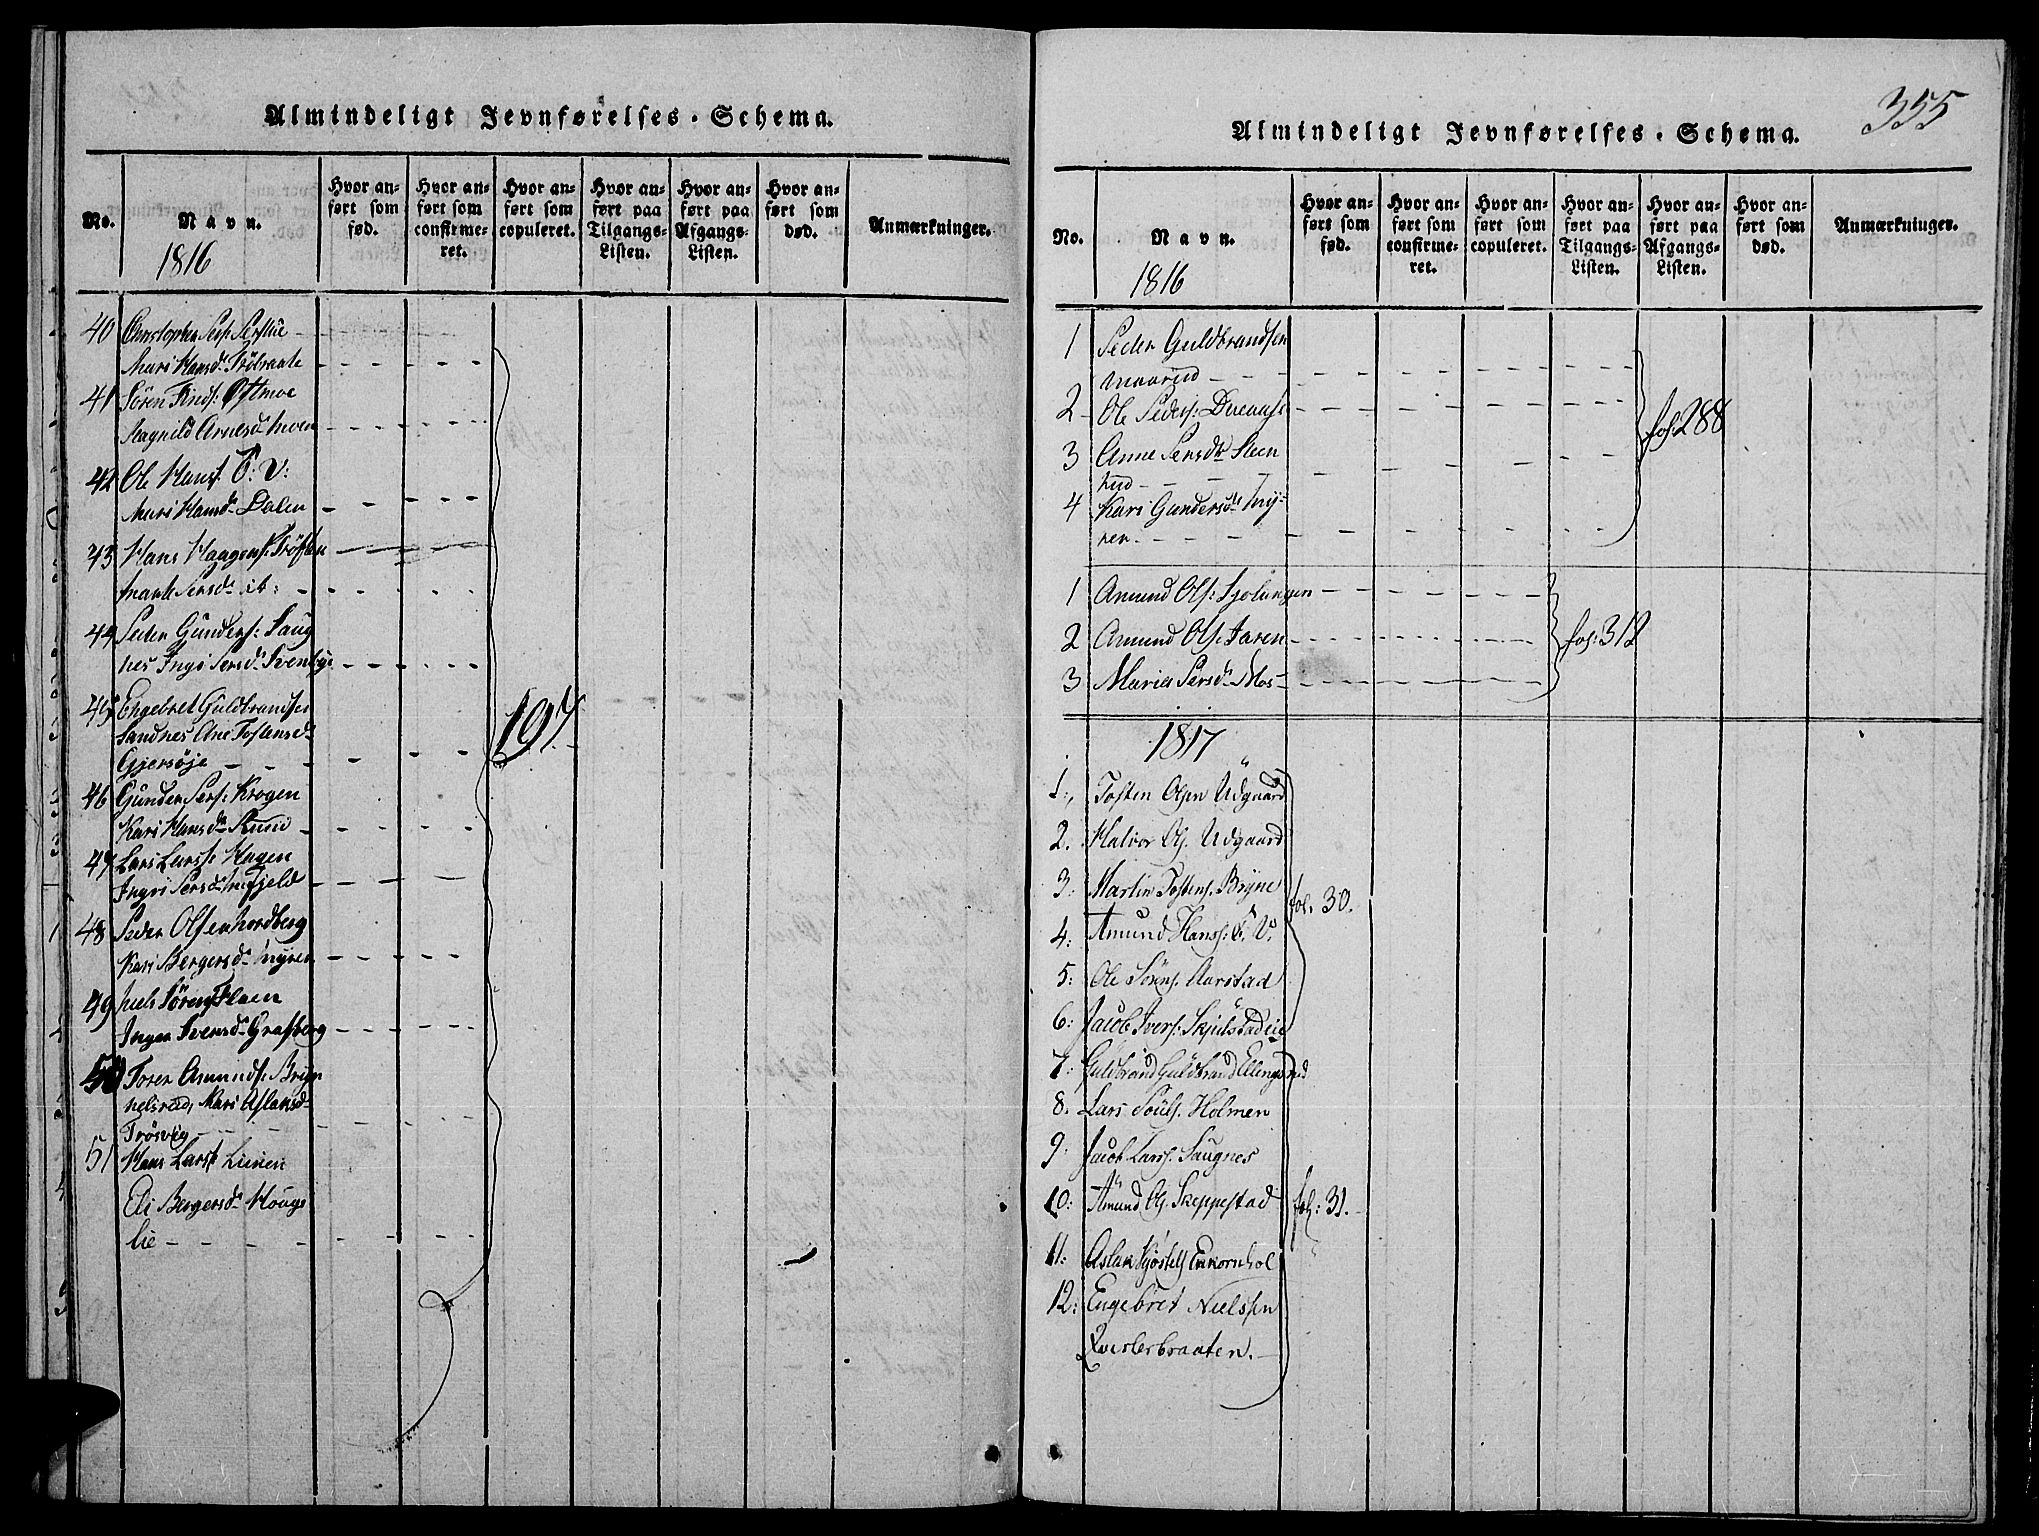 Almindeligt Jevnførelses-Schema.
No.
Navn.
1816
Hvor anført som fød.
Hvor anført som confirmeret.
Hvor anført som copuleret.
Hvor anført paa Tilgangs-Listen.
Hvor anført paa Afgangs-Listen.
Hvor anført som død.
Anmærkninger.
40 Christophen
Mari Hansdr
41 Sören Findsr: Østmoe
Ragnild Arnesdr Moen
42 Ole Hansr: E: V:
Mari Hansdr Dalen
43 Hans Haagensr: Tröften
Marte Persdr
44 Peder Gunders: Haug
nes Ingri Persdr Svenbye
45 Engebret Guldbrandsen
Sandnes Ane Tostensdr
Gjersøje
46 Gunder Persr: Krogen
Kari Hansdr Ruud
47 Lars Larsr: Hagen
Ingri Persdr Mefjeld
48 Peder Olsen Nordberg
Kari Bergersdr Myren
49 Niels Sörens: Floen
Inger Svensdr Grafberg
50 Toren Amundsr: Bryn
nelsrud, Mari Aslaksdr
Trösvig
51 Hans Larsr Lienen
Eli Bergersdr Houge
lie
197.
355
Almindeligt Jevnførelses-Schema.
No.
Navn.
1816
Hvor anført som fød.
Hvor anført som confirmeret.
Hvor anført som copuleret.
Hvor anført paa Tilgangs-Listen.
Hvor anført paa Afgangs-Listen.
Hvor anført som død.
Anmærkninger.
1 Peder Guldbrandsen
Maarud
2 Ole Peders:
3 Anne Persdr Steen
rud
4 Kari Gundersdr My-
ren
fol: 288
1 Amund Ols: Sjolungen
2 Amund Ols: Jaren
3 Maria Persdr Mos
fol: 312
1817
1: Tosten Olsen Udgaard
2. Halvor Ols. Udgaard
3: Martin Tostens. Bryne
4: Amund Hanss: E. V.
5: Ole Sörens. Aarstad
6: Jacob Ivers: Skjulstadeie
7: Guldbrand Guldbrand Ellengsrud
8. Lars Pouls. Holmen
9. Jacob Larss. Haugnes
10: Amund Ols. Skeppestad
11: Aslak Kjöstels Enkornhol
12: Engebret Nielsen
Qvesterbraaten.
fol. 30.
fol: 31.